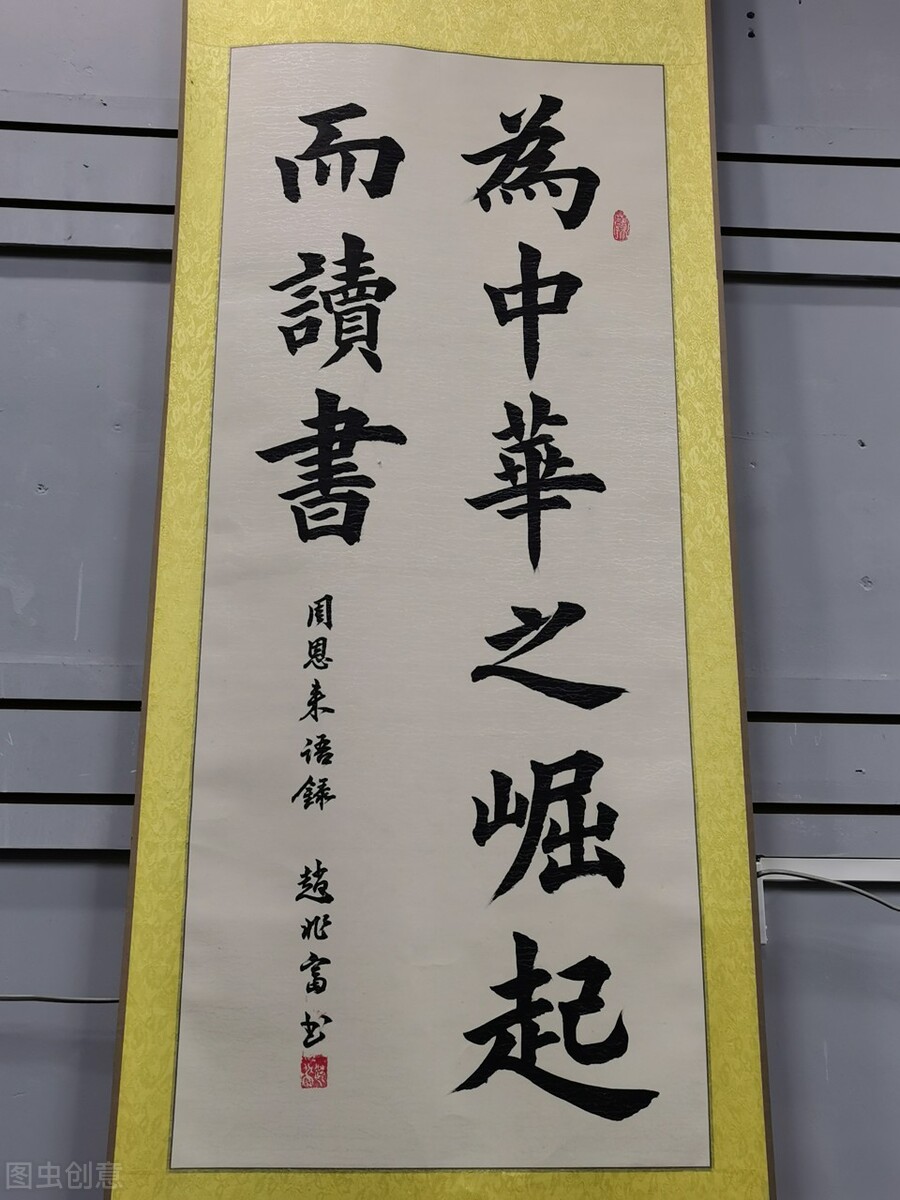 為中華之崛起
而讀書
周恩来语録 趙兆富书
图虫创意